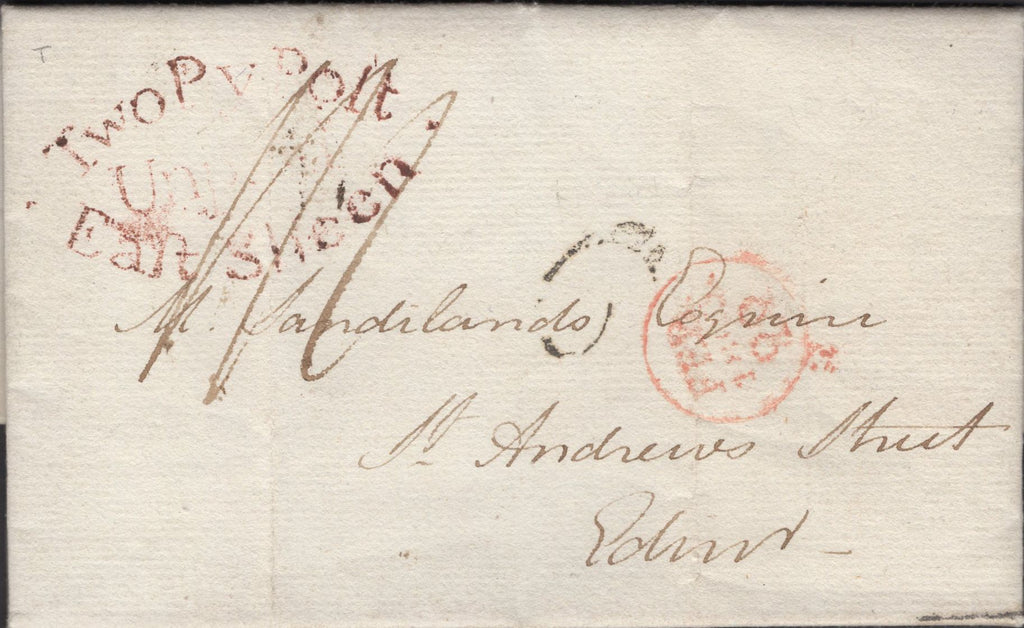 T
Two Py Poſt
Unp
Eaſt Sheen
M. Sandilands Esquire
St. Andrews Street
Edinr